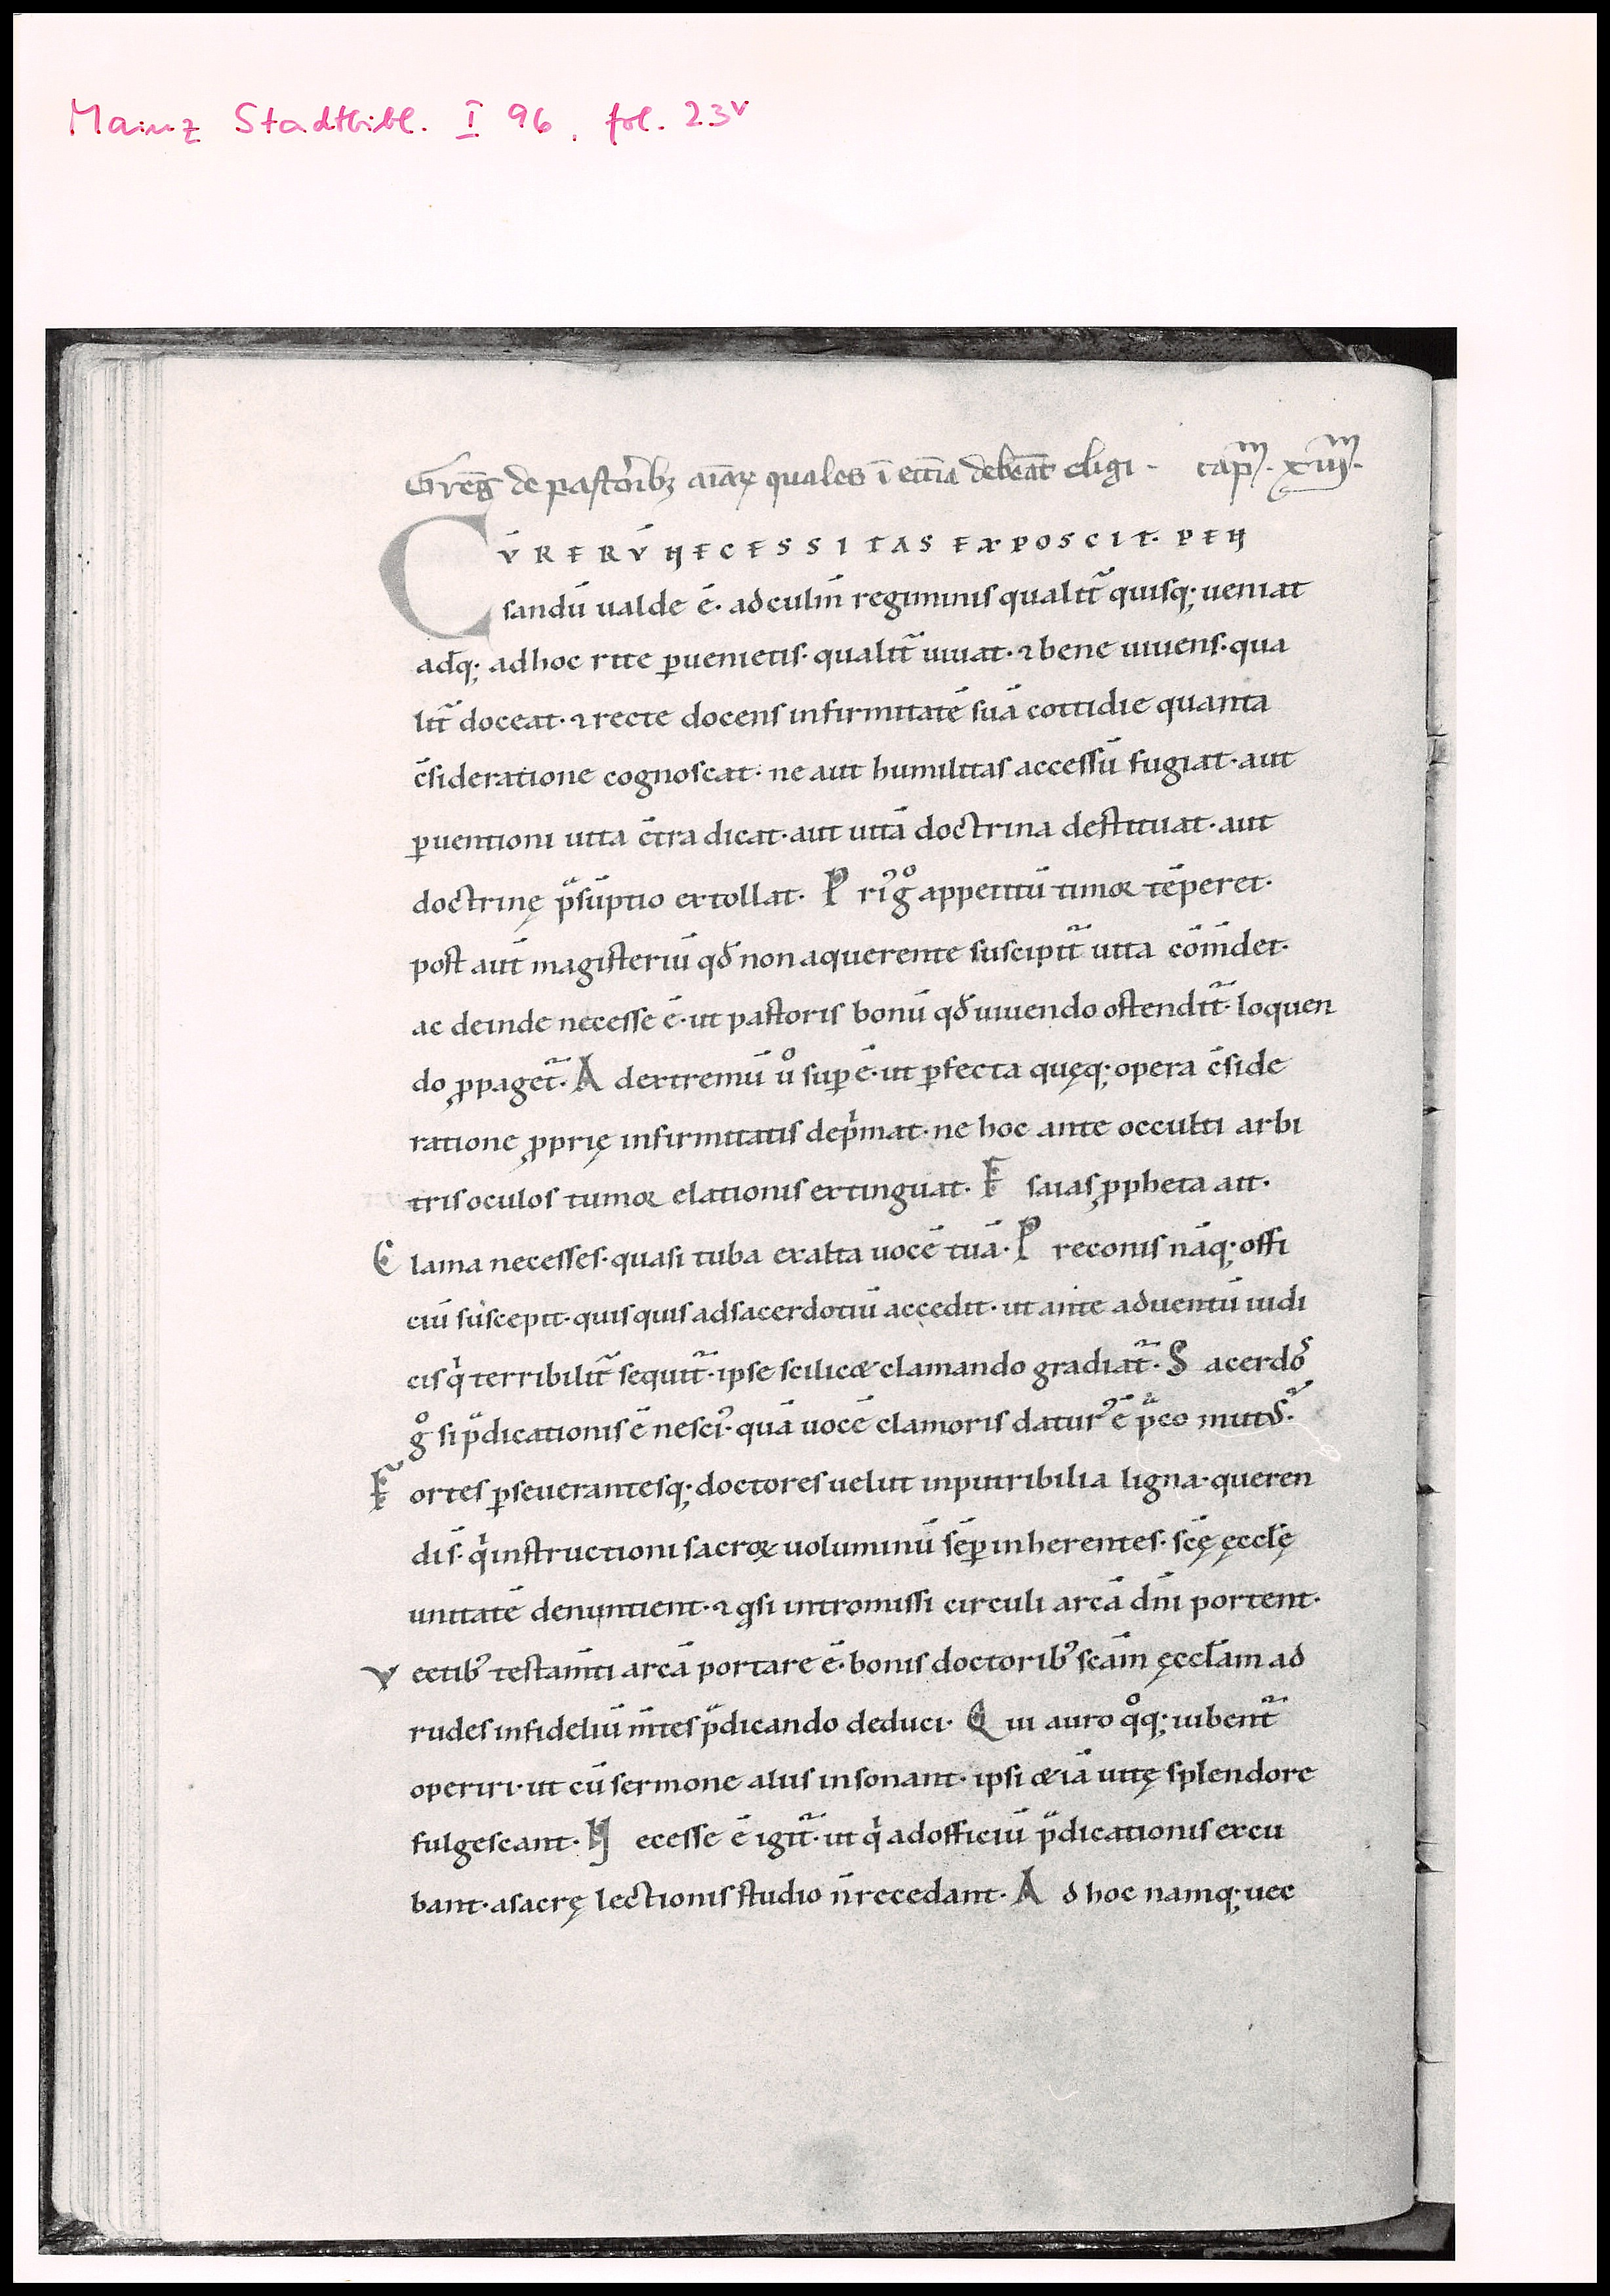 Mainz Stadtbibl. I 96, fol. 23v
Greḡ de pastorib; aīaꝝ quales ī ecc̄ia debeāt eligi · cap̄m · xiiijm ·
CV̄ RERV̄ NECESSITAS EXPOSCIT · PEN
sandū ualde ē · ad culm̄ regiminis qualit̄ quisq; ueniat
adq; ad hoc rite ꝑueniens · qualit̄ uiuat · ⁊ bene uiuens · qua
lit̄ doceat · ⁊ recte docens infirmitatē suā cottidie quanta
c̄sideratione cognoscat · ne aut humilitas accessū fugiat · aut
ꝑuentioni uita c̄tra dicat · aut uitā doctrina destituat · aut
doctrinę p̄sūptio extollat · P ri᷒ gͦ appetitū timor tēperet ·
post aut̄ magisteriū qđ non a querente suscipit̄ uita cōm̄det ·
ac deinde necesse ē · ut pastoris bonū qđ uiuendo ostendit̄ · loquen
do ꝓpaget̄ · A d extremū uͦ sup̱ ē · ut ꝑfecta quęq; opera c̄side
ratione ꝓprię infirmitatis dep͛mat · ne hoc ante occulti arbi
tris oculos tumor elationis extinguat · E saias ꝓpheta ait ·
C lama ne cesses · quasi tuba exalta uocē tuā · P reconis nāq; offi
ciū suscepit · quisquis ad sacerdotiū accedit · ut ante aduentū iudi
cis qͥ terribilit̄ sequit̄ · ipse scilicet clamando gradiat̄ · S acerdoˢ
gͦ si p̄dicationis ē nesci᷒ · quā uocē clamoris datur᷒ ē p̄co mut᷒ ·
F ortes ꝑseuerantesq; doctores uelut inputribilia ligna · queren
di s̄ · qͥ instructioni sacroꝝ uoluminū sēꝑ inherentes · sc̄ę ęccl̄ę
unitatē denuntient · ⁊ qͣsi intromissi circuli arcā dn̄i portent ·
V ectib᷒ testam̄ti arcā portare ē · bonis doctorib᷒ scām ęccl̄am ad
rudes infideliū m̄tes p̄dicando deduci · Q ui auro qͦq; iubent̄
operiri · ut cū sermone aliis insonant · ipsi etiā uitę splendore
fulgescant · N ecesse ē igit̄ · ut qͥ ad officiū p̄dicationis excu
bant · a sacrę lectionis studio n̄ recedant · A d hoc namq; uec